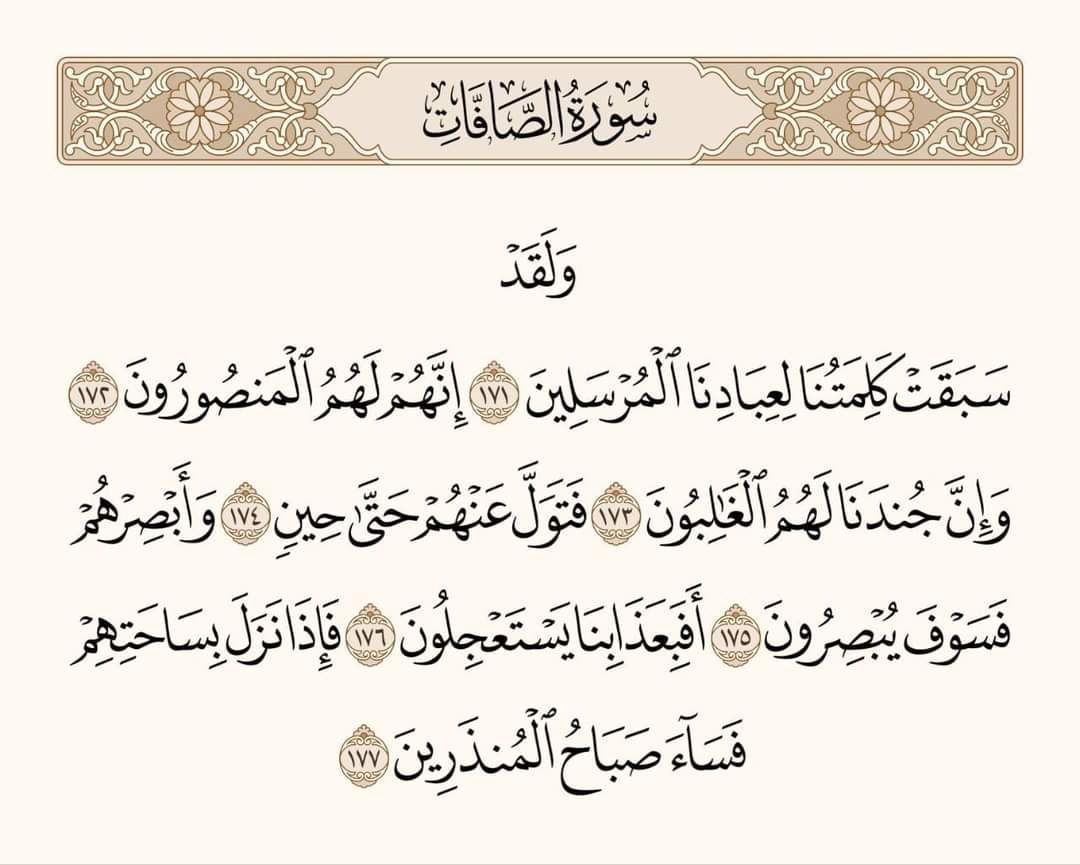 سُورَةُ الصَّافَّاتِ
وَلَقَدْ
سَبَقَتْ كَلِمَتُنَا لِعِبَادِنَا ٱلْمُرْسَلِينَ ١٧١ إِنَّهُمْ لَهُمُ ٱلْمَنصُورُونَ ١٧٢
وَإِنَّ جُندَنَا لَهُمُ ٱلْغَٰلِبُونَ ١٧٣ فَتَوَلَّ عَنْهُمْ حَتَّىٰ حِينٍ ١٧٤ وَأَبْصِرْهُمْ
فَسَوْفَ يُبْصِرُونَ ١٧٥ أَفَبِعَذَابِنَا يَسْتَعْجِلُونَ ١٧٦ فَإِذَا نَزَلَ بِسَاحَتِهِمْ
فَسَآءَ صَبَاحُ ٱلْمُنذَرِينَ ١٧٧